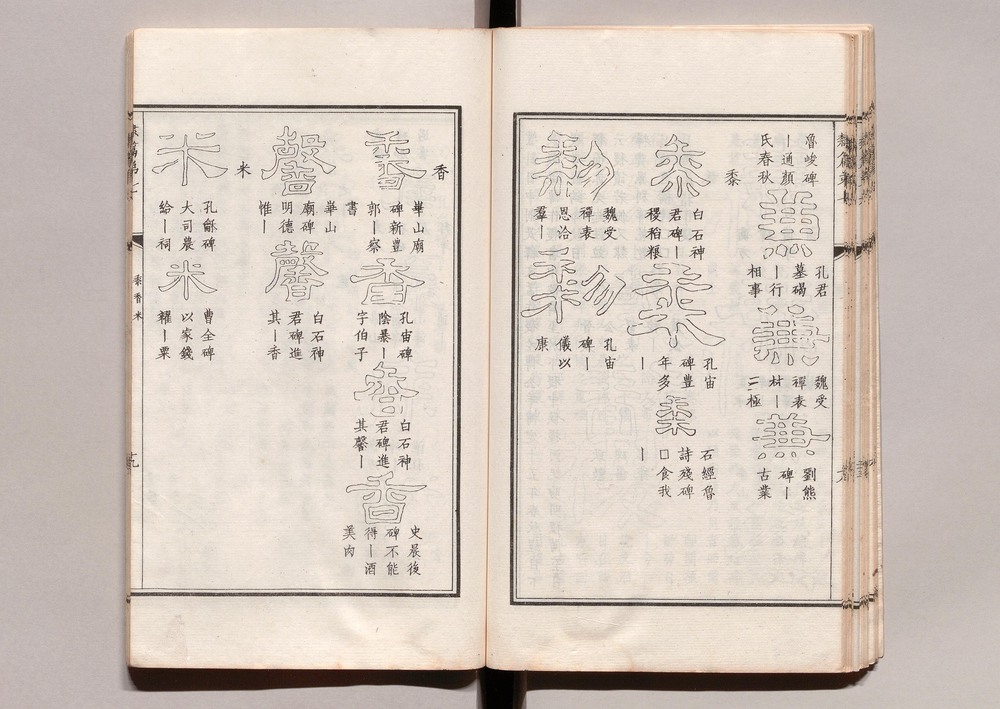 魯峻碑
｜通顏
氏春秋
兼
孔君
墓碣
｜行
相事
兼
魏受
禪表
材｜
三極
兼
劉熊
碑｜
古業
黍
黍
白石神
君碑｜
稷稻粮
黍
孔宙
碑豐
年多
｜
黍
石經魯
詩殘碑
囗食我
｜
黎
魏受
禪表
思洽
羣｜
黎
孔宙
碑｜
儀以
康
香
香
華山廟
碑新豐
郭｜察
書
香
孔宙碑
陰暴｜
字伯子
香
白石神
君碑進
其馨｜
香
史晨後
碑不能
得｜酒
美肉
馨
華山
廟碑
明德
惟｜
馨
白石神
君碑進
其｜香
米
米
孔龢碑
大司農
給｜祠
米
曹全碑
以家錢
糴｜粟
黍香米